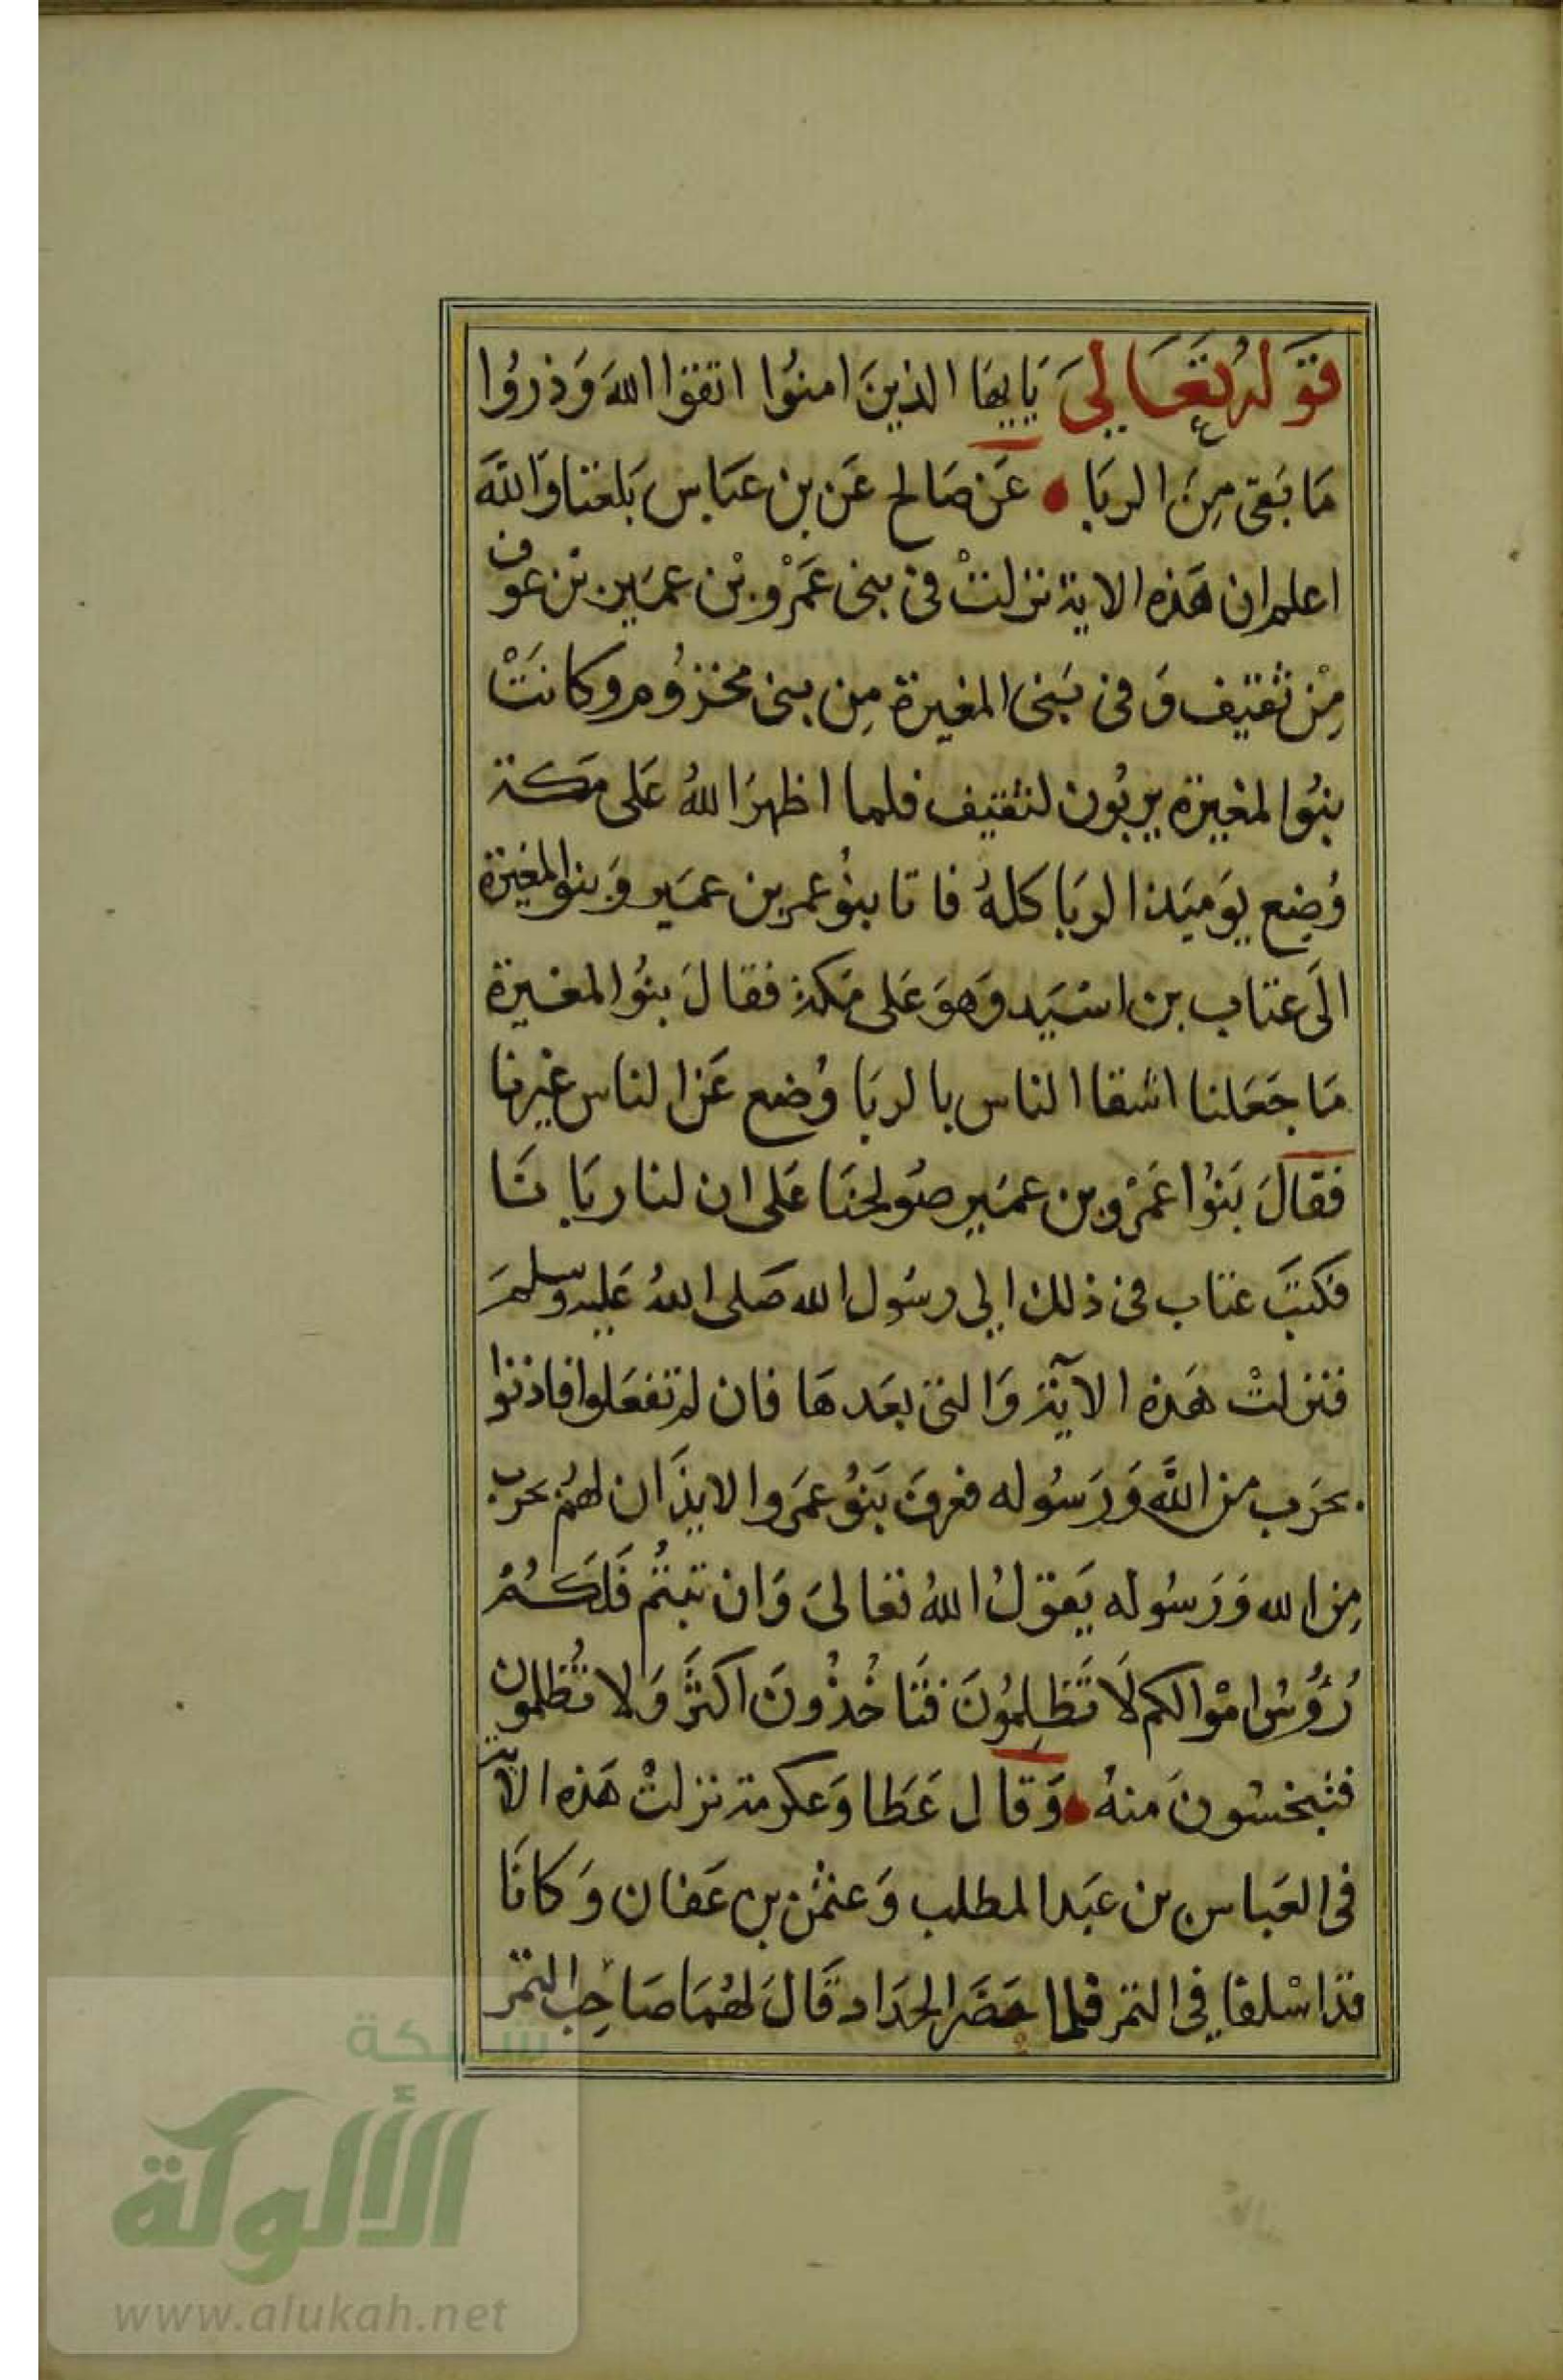 قوله تعالى يايها الذين امنوا اتقوا الله وذروا
ما بقى من الربا عن صالح عن بن عباس بلغنا والله
اعلم ان هذه الاية نزلت فى بنى عمرو بن عمير بن عوف
من ثقيف وفى بنى المغيرة من بنى مخزوم وكانت
بنوا لمغيرة يربون لثقيف فلما اظهر الله على مكة
وضع يوميذ الربا كله فاتا بنو عمر بن عمير وبنو المغيرة
الى عتاب بن اسيد وهو على مكة فقال بنوا المغيرة
ما جعلنا اشقا الناس بالربا وضع عن الناس غيرنا
فقال بنوا عمرو بن عمير صولحنا على ان لنا ربانا
فكتب عتاب فى ذلك الى رسول الله صلى الله عليه وسلم
فنزلت هذه الآية والتى بعدها فان لم تفعلوا فاذنوا
بحرب من الله ورسوله فعرف بنو عمرو الا يذان لهم بحرب
من الله ورسوله يقول الله تعالى وان تبتم فلكم
رؤوس اموالكم لا تظلمون فتاخذون اكثر ولا تظلمون
فتبخسون منه وقال عطا وعكرمة نزلت هذه الاية
فى العباس بن عبد المطلب وعثمن بن عفان وكانا
قد اسلفا في التمر فلما حضر الجداد قال لهما صاحب التمر
شبكة
الألوكة
www.alukah.net